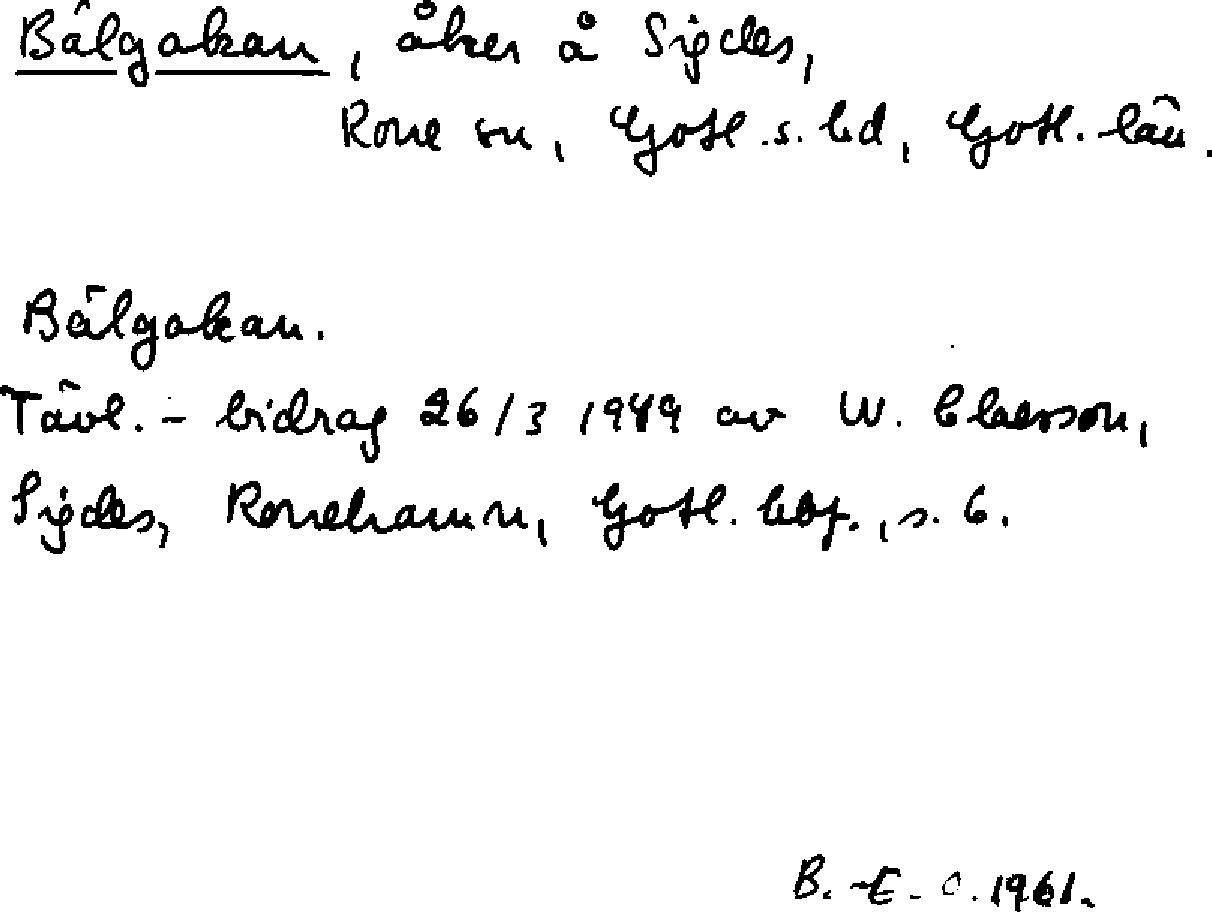 Bälgakan, åker å Sigdes,
Rone sn, Gotl. s. hd, Gotl. län.
Bälgakan.
Tävl. - bidrag 26/3 1949 av W. Claesson,
Sigdes, Ronehamn, Gotl. hbf., s. 6.
B. -E. O. 1961.